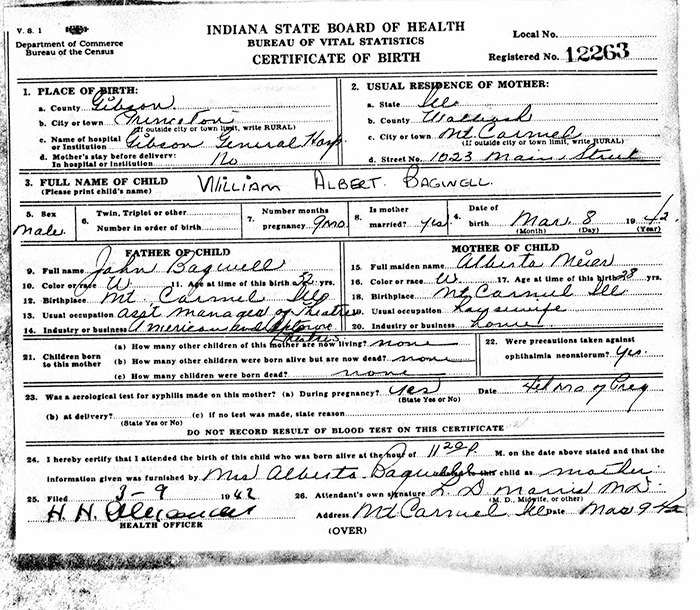 V. S. 1
INDIANA STATE BOARD OF HEALTH
Department of Commerce
Bureau of the Census
BUREAU OF VITAL STATISTICS
CERTIFICATE OF BIRTH
Local No.
Registered No. 12263
1. PLACE OF BIRTH:
a. County Gibson
b. City or town Princeton
(If outside city or town limit, write RURAL)
c. Name of hospital or Institution Gibson General Hosp.
d. Mother's stay before delivery: In hospital or institution No
2. USUAL RESIDENCE OF MOTHER:
a. State Ill
b. County Wabash
c. City or town Mt Carmel
(If outside city or town limits, write RURAL)
d. Street No. 1023 Main Street
3. FULL NAME OF CHILD WILLIAM ALBERT BAGWELL
(Please print child's name)
5. Sex Male
6. Twin, Triplet or other
Number in order of birth
7. Number months pregnancy 9 mo.
8. Is mother married? yes
4. Date of birth Mar. 8 1942
(Month) (Day) (Year)
FATHER OF CHILD
9. Full name John Bagwell
10. Color or race W 11. Age at time of this birth 32 yrs.
12. Birthplace Mt. Carmel Ill
13. Usual occupation asst manager of theatres
14. Industry or business American and
Theatres
MOTHER OF CHILD
15. Full maiden name Alberta Meier
16. Color or race W. 17. Age at time of this birth 28 yrs.
18. Birthplace Mt Carmel Ill
19. Usual occupation Housewife
20. Industry or business home
21. Children born to this mother
(a) How many other children of this mother are now living? none
(b) How many other children were born alive but are now dead? none
(c) How many children were born dead? none
22. Were precautions taken against ophthalmia neonatorum? Yes.
23. Was a serological test for syphilis made on this mother? (a) During pregnancy? Yes Date 7th mo of Preg
(State Yes or No)
(b) at delivery? (c) If no test was made, state reason
(State Yes or No)
DO NOT RECORD RESULT OF BLOOD TEST ON THIS CERTIFICATE
24. I hereby certify that I attended the birth of this child who was born alive at the hour of 11 20 P. M. on the date above stated and that the
information given was furnished by Mrs Alberta Bagwell related to this child as mother
25. Filed 3-9 1942
26. Attendant's own signature L D Morris MD.
(M. D., Midwife, or other)
H. H. Alexander
HEALTH OFFICER
Address Mt Carmel Ill Date Mar 9 42
(OVER)